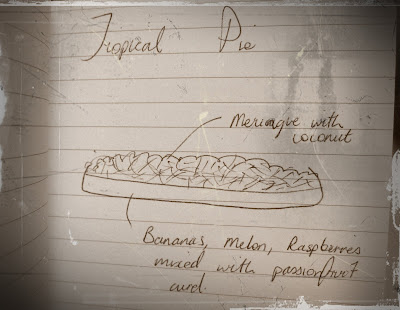 Tropical Pie
Meringue with
coconut
Bananas, Melon, Raspberries
mixed with passionfruit
curd.